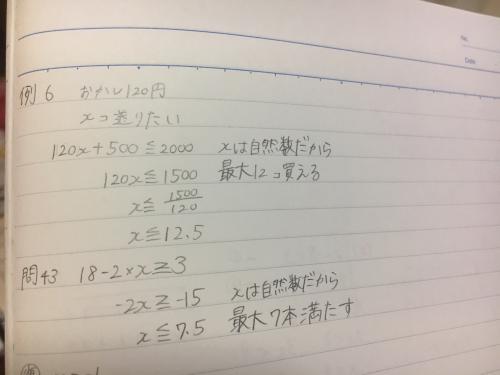 No.
Date
例6 おかし120円
xコ送りたい
120x+500≦2000 xは自然数だから
120x≦1500 最大12コ買える
x≦1500/120
x≦12.5
問43 18-2×x≧3
-2x≧-15 xは自然数だから
x≦7.5 最大7本満たす